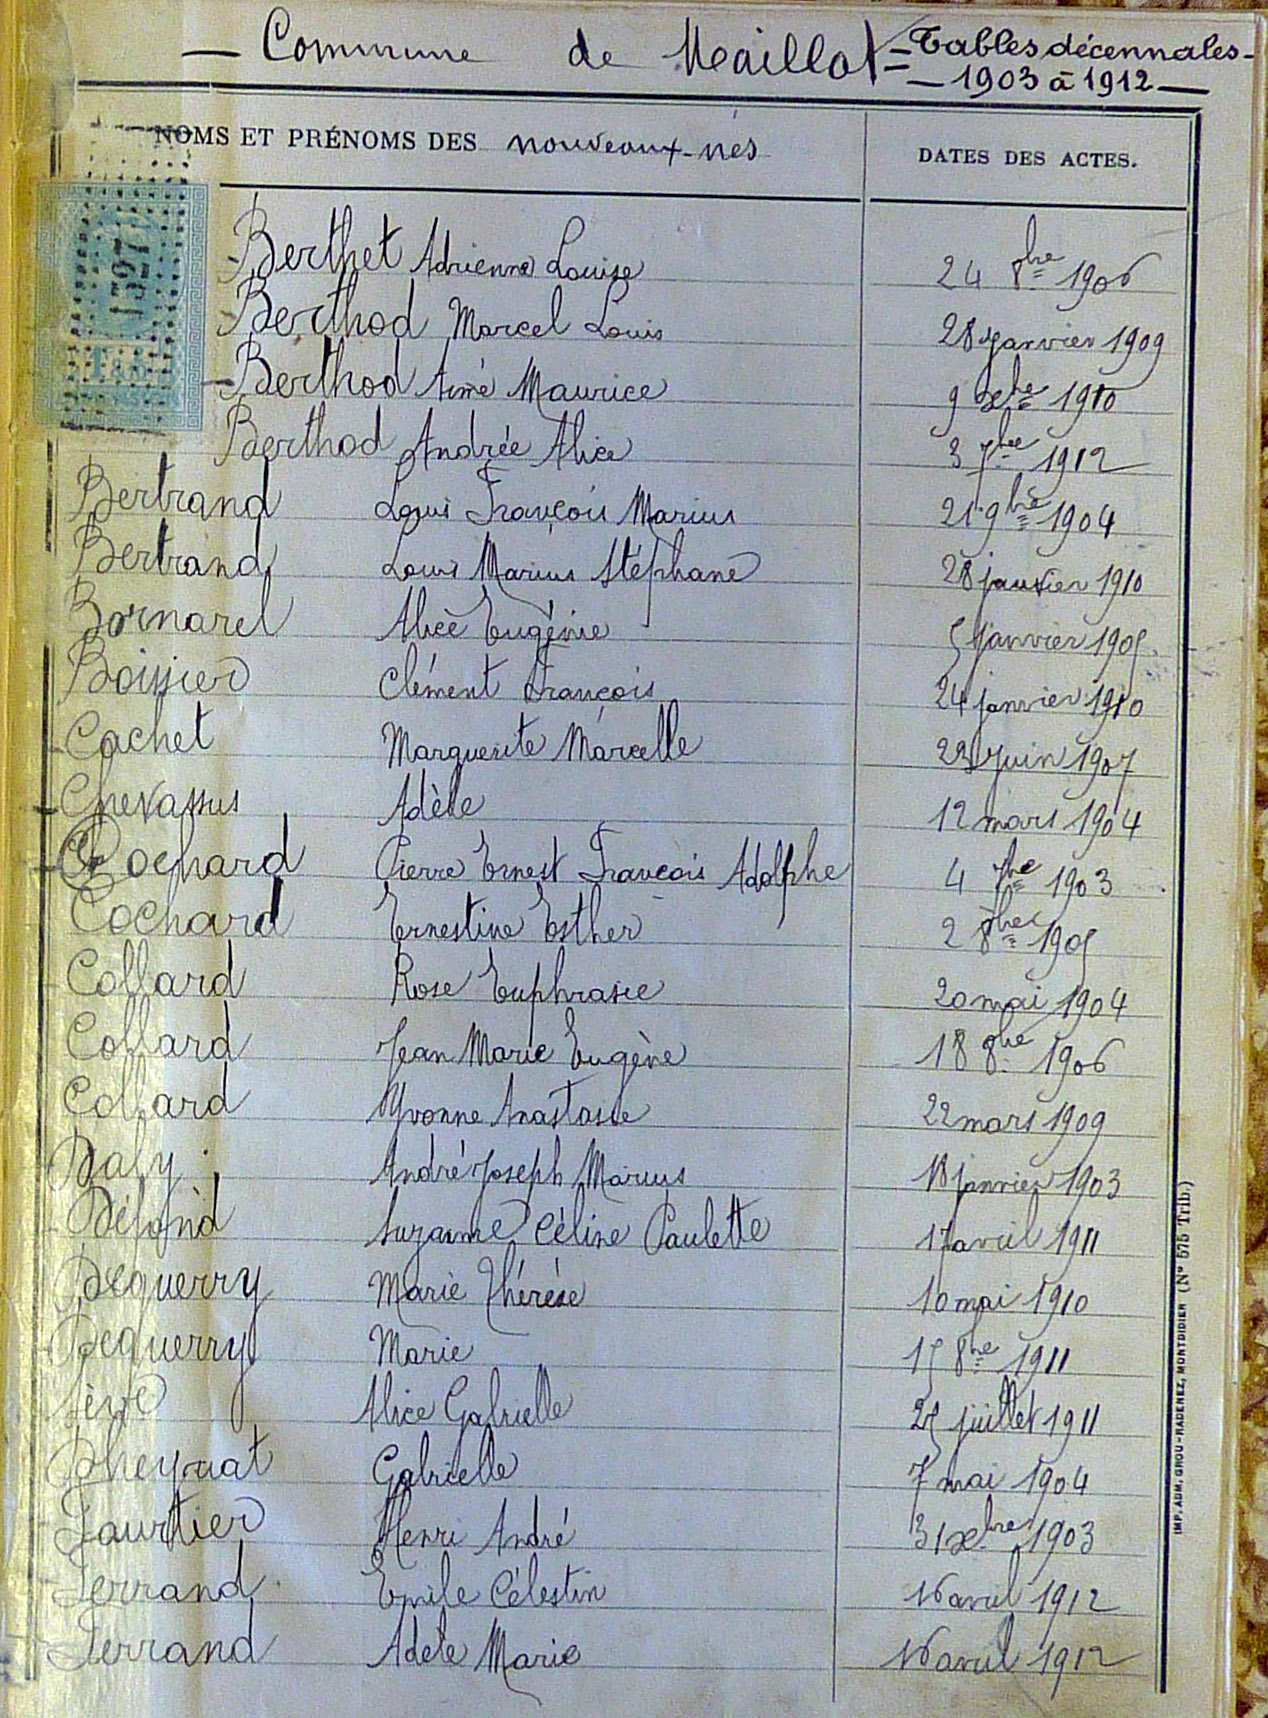 — Commune de Maillat = Tables décennales —
— 1903 à 1912 —
NOMS ET PRÉNOMS DES nouveaux-nés DATES DES ACTES.
1527
Berthet Adrienne Louise 24 8bre 1906
Berthod Marcel Louis 28 janvier 1909
Berthod Aimé Maurice 9 xbre 1910
Berthod Andrée Alice 3 7bre 1912
Bertrand Louis François Marius 21 9bre 1904
Bertrand Louis Marius Stéphane 28 janvier 1910
Bornarel Alice Eugénie 5 janvier 1905
Boissier Clément François 24 janvier 1910
Cachet Marguerite Marcelle 23 juin 1907
Chevassus Adèle 12 mars 1904
Cochard Pierre Ernest François Adolphe 4 7bre 1903
Cochard Ernestine Esther 2 8bre 1905
Collard Rose Euphrasie 20 mai 1904
Collard Jean Marie Eugène 18 8bre 1906
Collard Yvonne Anastasie 22 mars 1909
Daly André Joseph Marius 18 janvier 1903
Suzanne Céline Paulette 17 avril 1911
Dequerry Marie Thérèse 10 mai 1910
Dequerry Marie 15 8bre 1911
Alice Gabrielle 25 juillet 1911
Gabrielle 7 mai 1904
Faurtier Henri André 31 xbre 1903
Ferrand Emile Célestin 16 avril 1912
Ferrand Adèle Marie 16 avril 1912
IMP. ADM. GROU-RADENEZ, MONTDIDIER (N° 575 Trib.)